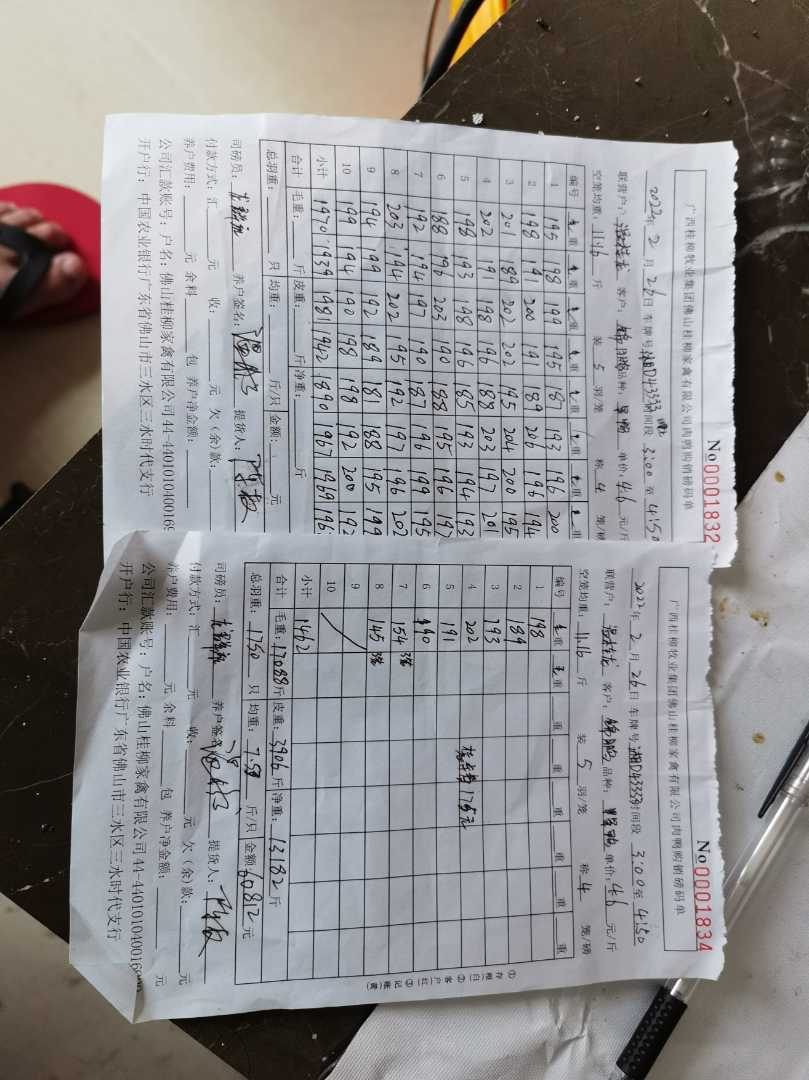 广西桂柳牧业集团佛山桂柳家禽有限公司肉鸭购销磅码单
№0001832
2022年 2 月 26 日 车牌号 湘D43333 时间段 3:00 至 4:50
联营户: 客户: 品种: 单价: 4.6 元/斤
空笼均重: 11.16 斤 装 5 羽/笼 称 4 笼/磅
编号 毛重 毛重 毛重 毛重 重 重 毛重 毛重
1 195 198 199 195 187 193 196 200
2 198 191 200 191 189 206 196 194
3 201 189 202 202 195 204 200 195
4 202 191 198 196 188 203 197 201
5 198 193 198 196 185 193 194 193
6 188 196 203 190 188 195 196 197
7 192 194 197 190 187 196 199 195
8 203 194 202 195 192 197 196 202
9 194 199 192 189 181 188 195 199
10 199 194 190 198 198 192 200 192
小计 1970 1939 1981 1942 1890 1967 1969 196
合计 毛重: 斤 皮重: 斤 净重: 斤
总羽重: 只 均重: 斤/只 金额: 元
司磅员: 养户签名: 提货人:
付款方式: 汇 元 收: 元 欠(余)款:
养户费用: 元 余料 包 养户净金额:
公司汇款账号: 户名: 佛山桂柳家禽有限公司 44-440101040016
开户行: 中国农业银行广东省佛山市三水区三水时代支行
广西桂柳牧业集团佛山桂柳家禽有限公司肉鸭购销磅码单
№0001834
2022年 2 月 26 日 车牌号 湘D43333 时间段 3:00 至 4:50
联营户: 客户: 品种: 单价: 4.6 元/斤
空笼均重: 11.16 斤 装 5 羽/笼 称 4 笼/磅
编号 毛重 毛重 重 重 重 重 重 重
1 198
2 189
3 193
4 202 175元
5 191
6 190
7 154 3笼
8 145 3笼
9
10
小计 1462
合计 毛重: 17088 斤 皮重: 3906 斤 净重: 13182 斤
总羽重: 1750 只 均重: 7.53 斤/只 金额: 60812 元
司磅员: 养户签名: 提货人:
付款方式: 汇 元 收: 元 欠(余)款: 元
养户费用: 元 余料 包 养户净金额: 元
公司汇款账号: 户名: 佛山桂柳家禽有限公司 44-440101040016
开户行: 中国农业银行广东省佛山市三水区三水时代支行
①存根(白) ②客户(红) ③记账(黄)